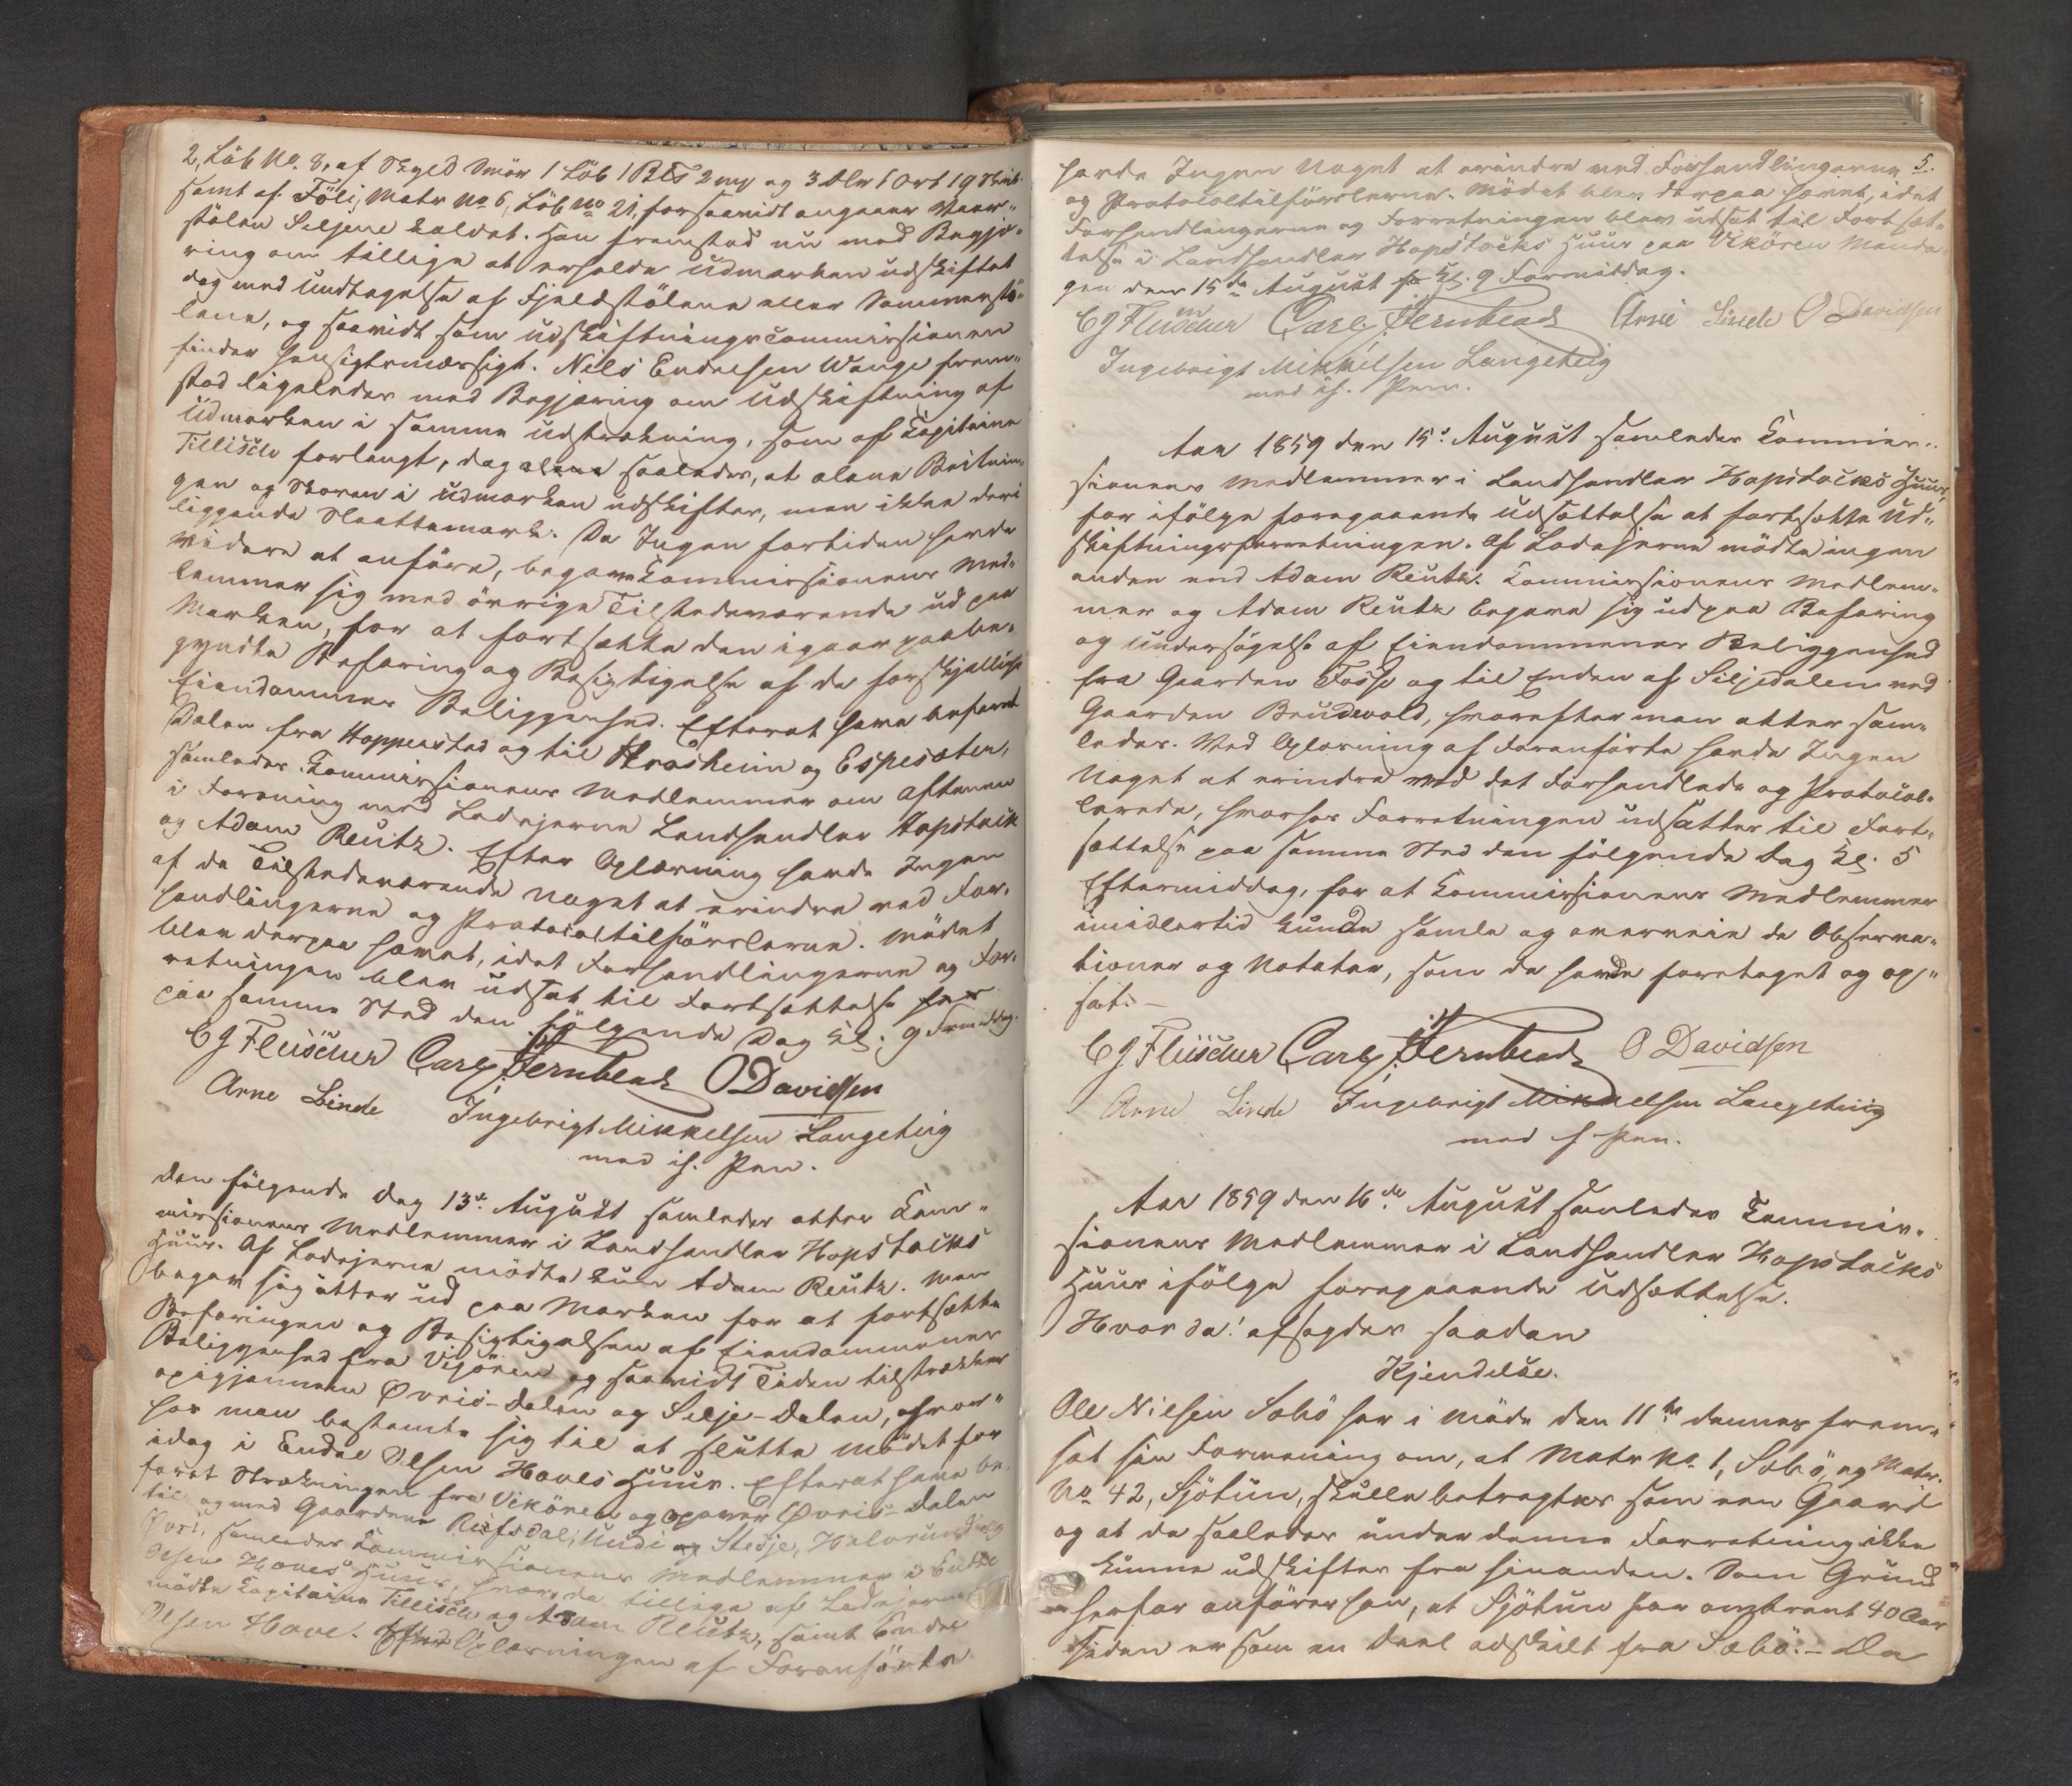 2, Löb No. 8, af Skyld Smör 1 Löb 1 Bpd 2 mk og 3 Dlr 1 Ort 19 Skill.
samt af Föli, Matr No 6, Löb No 21, forsaavidt angaaer Vaar-
stölen Siljene kaldet. Han fremstod nu med Begjæ-
ring om tillige at erholde Udmarken udskiftet
dog med Undtagelse af Fjeldstölene eller Sommerstö-
lene, og saavidt som Udskiftningscommissionen
finder hensigtsmæssigt. Nils Endresen Wange frem-
stod ligeledes med Begjæring om Udskiftning af
Udmarken i samme Udstrækning, som af Capitaine
Tillisch forlangt, dog alene saaledes, at alene Beitnin-
gen og Skoven i Udmarken udskiftes, men ikke deri
liggende Slaattemark. Da Ingen fortiden havde
videre at anföre, begave Commissionens Med-
lemmer sig med övrige Tilstedeværende ud paa
Marken, for at fortsætte den igaar paabe-
gyndte Befaring og Besigtigelse af de forskjellige
Eiendommes Beliggenhed. Efterat have befaret
Dalen fra Hopperstad og til Aroskeim og Espesæter,
samledes Commissionens Medlemmer om Aftenen
i Forening med Lodejerne Landhandler Hopstock
og Adam Reutz. Efter Oplæsning havde Ingen
af de Tilstedeværende noget at erindre ved For-
handlingerne og Protocoltilförslerne. Mödet
blev derpaa hævet, idet Forhandlingerne og For-
retningen blev udsat til Fortsættelse her
paa samme Sted den fölgende Dag Kl. 9 Formiddag.
C J Fleischer Carl J. Fernblad O Davidsen
Arne Linde Ingebrigt Mikkelsen Langeteig
med ih. Pen.
Den fölgende Dag 13de August samledes atter Com-
missionens Medlemmer i Landhandler Hopstocks
Huus. Af Lodejerne mödte kun Adam Reutz. Man
begav sig atter ud paa Marken for at fortsætte
Befaringen og Besigtigelsen af Eiendommenes
Beliggenhed fra Vigören og saavidt Tiden tilstrækker
opigjennem Øvris-Dalen og Silje-Dalen, hvor-
hos man bestemte sig til at slutte Mödet for
idag i Endre Olsen Hoves Huus. Efterat have be-
faret Strækningen fra Vikören og opover Øvris-Dalen
til og med Gaardene Reifsdal, Undi og Stedje, Halvrund og
Øvri, samledes Commissionens Medlemmer i Endre
Olsen Hoves Huus, hvor da tillige af Lodejerne
mödte Capitaine Tillisch og Adam Reutz, samt Endre
Olsen Hove. Efter Oplæsningen af Foranförte
5.
havde Ingen Noget at erindre ved Forhandlingerne
og Protocoltilförslerne. Mödet blev derpaa hævet, idet
Forhandlingerne og Forretningen blev udsat til Fortsæt-
telse i Landhandler Hopstocks Huus paa Vikören Manda-
gen den 15de August Kl. 9 Formiddag.
C J Fleischer Carl J. Fernblad Arne Linde O Davidsen
Ingebrigt Mikkelsen Langeteig
med ih. Pen.
Aar 1859 den 15de August samledes Commis-
sionens Medlemmer i Landhandler Hopstocks Huus,
for ifölge foregaaende Udsættelse at fortsætte Ud-
skiftningsforretningen. Af Lodejerne mödte ingen
anden end Adam Reutz. Commissionens Medlem-
mer og Adam Reutz begave sig ud paa Befaring
og Undersögelse af Eiendommenes Beliggenhed
fra Gaarden Fosse og til Enden af Siljedalen ved
Gaarden Brudevold, hvorefter man atter sam-
ledes. Ved Oplæsning af Foranförte havde Ingen
Noget at erindre ved det Forhandlede og Protocol-
lerede, hvorhos Forretningen udsættes til Fort-
sættelse paa samme Sted den fölgende Dag Kl. 5
Eftermiddag, for at Commissionens Medlemmer
imidlertid kunde samle og overveie de Observa-
tioner og Notater, som de havde foretaget og op-
sat. –
C J Fleischer Carl J. Fernblad O Davidsen
Arne Linde Ingebrigt Mikkelsen Langeteig
med h Pen.
Aar 1859 den 16de August samledes Commis-
sionens Medlemmer i Landhandler Hopstocks
Huus ifölge foregaaende Udsættelse.
Hvorda! afsagdes saadan
Kjendelse.
Ole Nilsen Sæbö har i Möde den 11te dennes frem-
sat sin Formening om, at Matr No. 1, Sæbö, og Matr.
No 42, Sjötun, skulle betragtes som een Gaard
og at de saaledes under denne Forretning ikke
kunne udskiftes fra hinanden. Som Grund
herfor anförer han, at Sjötun for omtrent 40 Aar
siden er som en Deel adskilt fra Sæbö. – Da